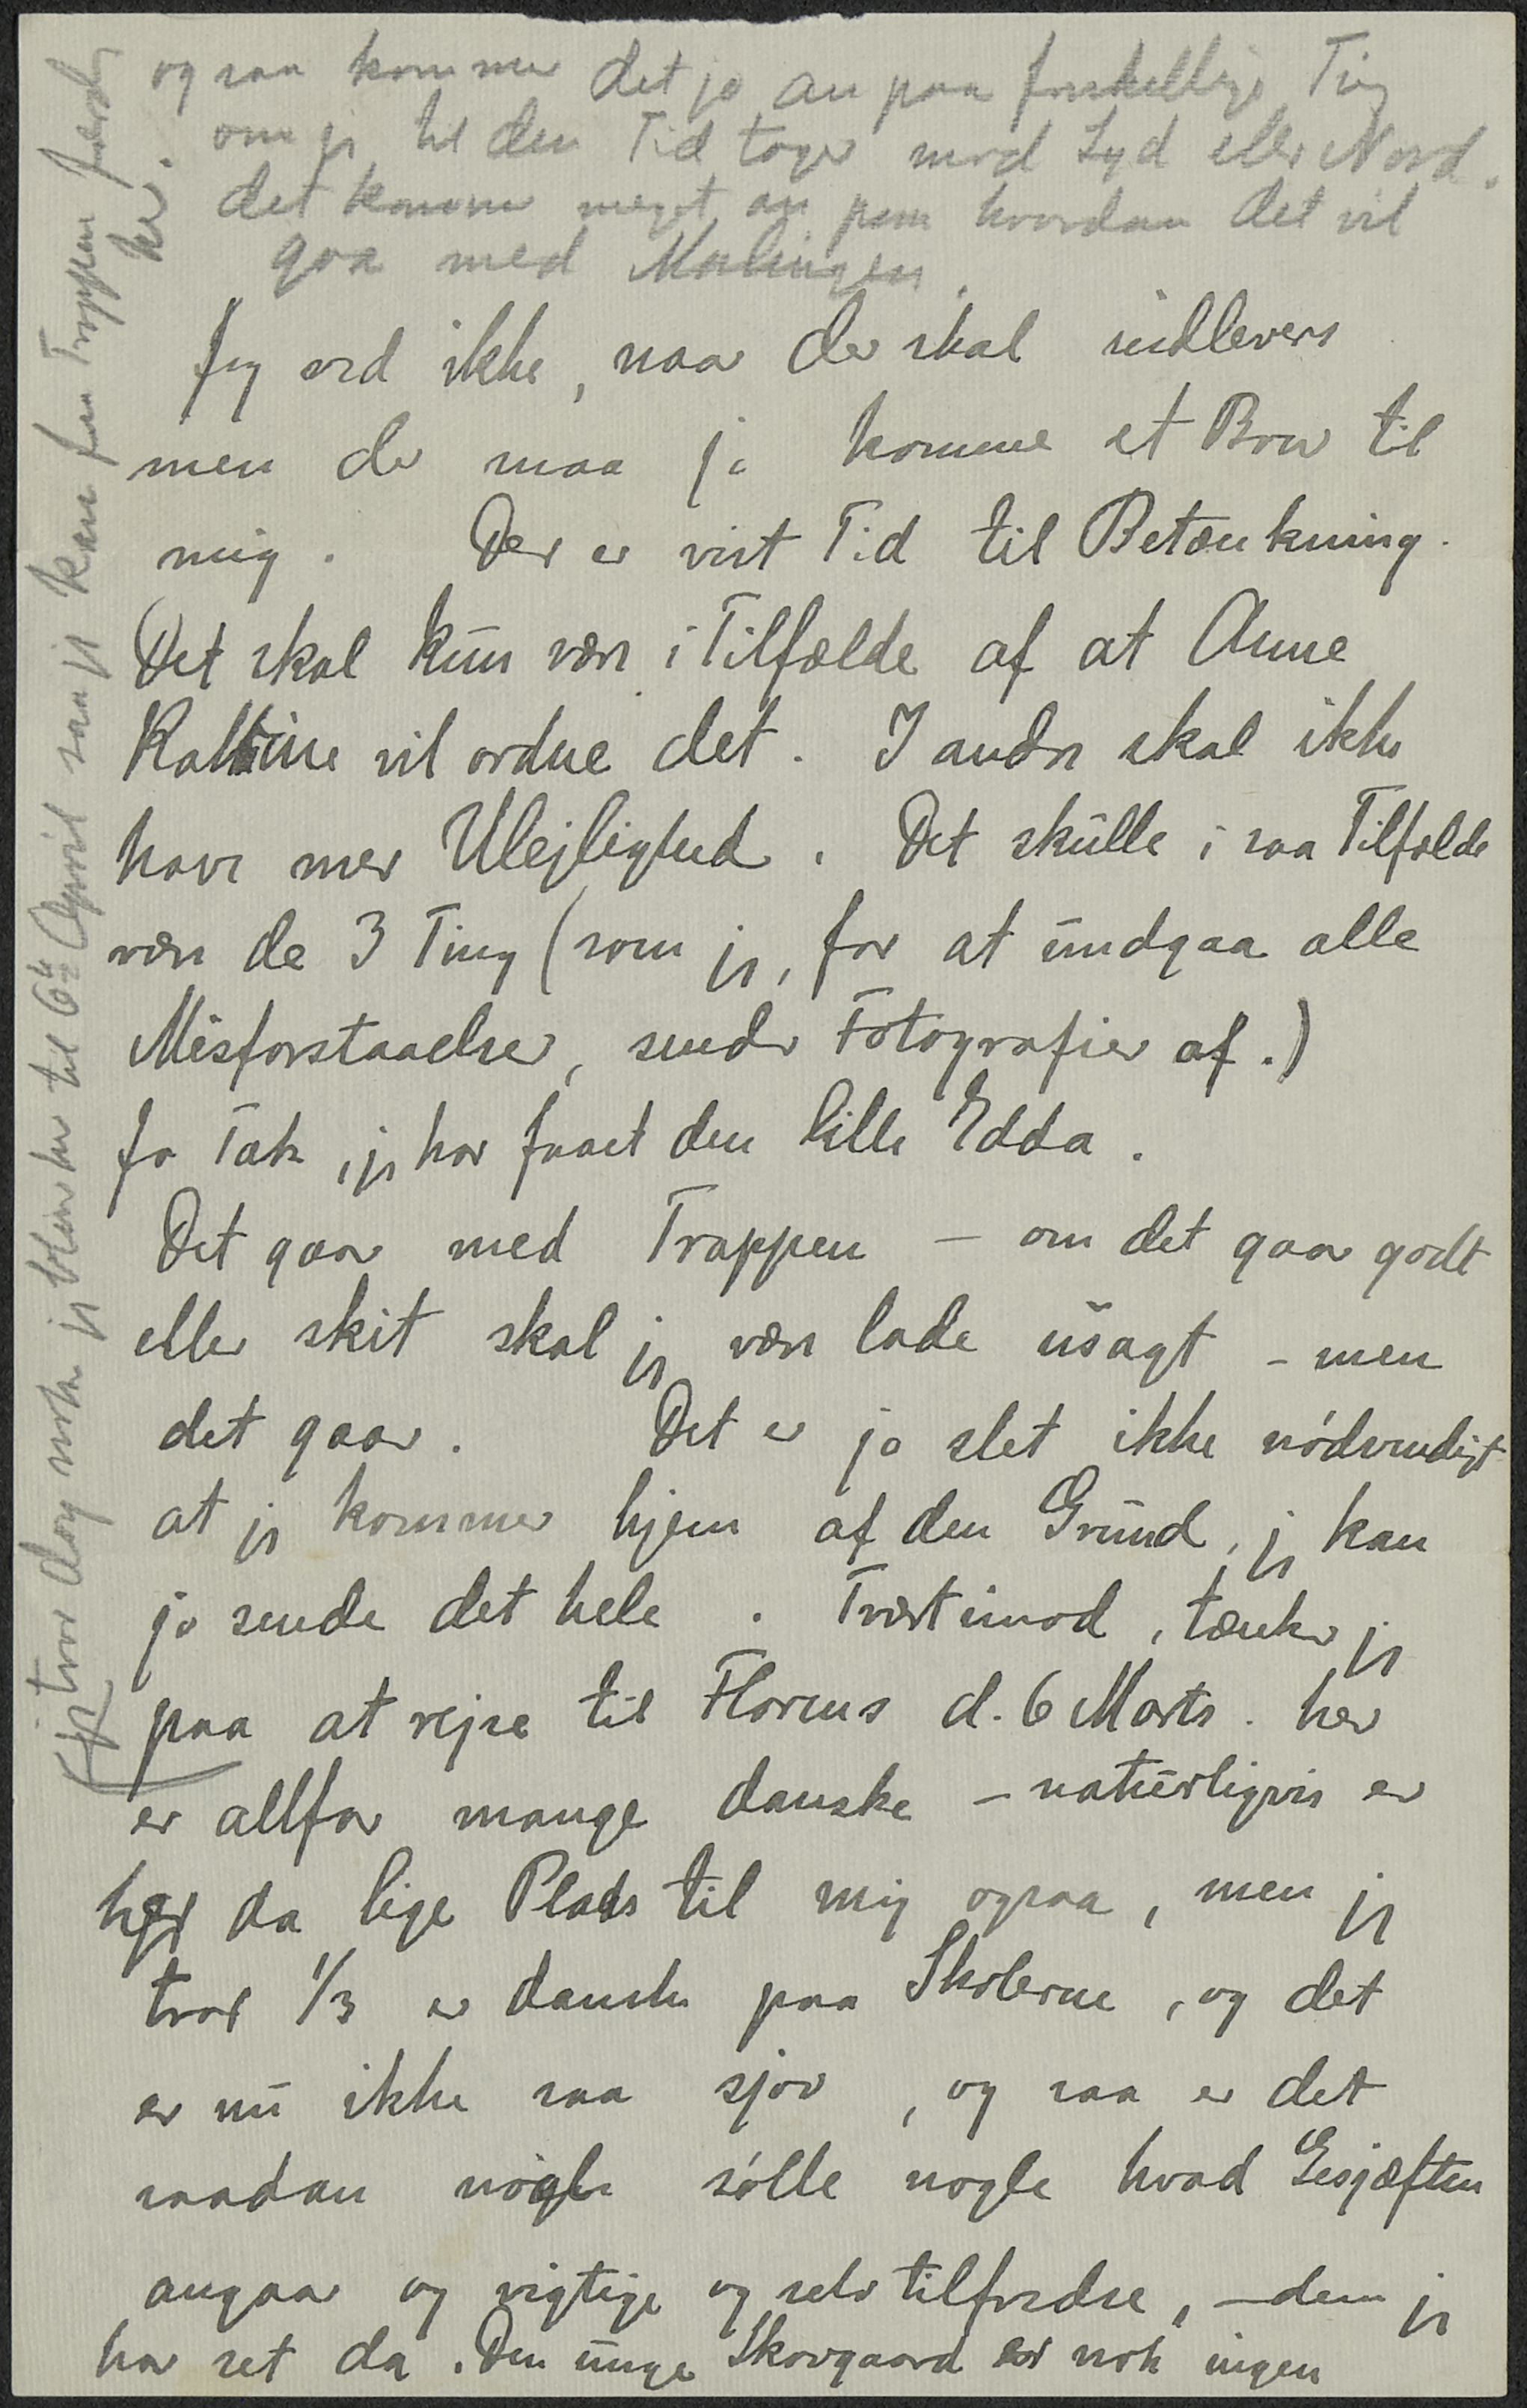 og saa kommer det jo an paa forskellige Ting
om jeg til den Tid tager mod Syd eller Nord.
det kommer meget an paa hvordan det vil
gaa med Malingen.
Jeg ved ikke, naar der skal indleveres
men der maa jo komme et Brev til
mig. Der er vist Tid til Betænkning.
Det skal kun være i Tilfælde af at Anne
Kathrine vil ordne det. I andre skal ikke
have mer Ulejlighed. Det skulle i saa Tilfælde
være de 3 Ting (som jeg, for at undgaa alle
Misforstaaelser, sender Fotografier af.)
Jo Tak, jeg har faaet den lille Edda.
Det gaar med Trappen – om det gaar godt
eller skit skal jeg være lade usagt – men
det gaar. Det er jo slet ikke nødvendigt
at jeg kommer hjem af den Grund, jeg kan
jo sende det hele. Tværtimod, tænker jeg
paa at rejse til Florens d. 6 Marts. her
er altfor mange danske – naturligvis er
her da lige Plads til mig ogsaa, men jeg
tror 1/3 er danske paa Skolerne, og det
er nu ikke saa sjov, og saa er det
saadan nogle sølle nogle hvad Gesjæften
angaar og vigtige og selvtilfredse, – dem jeg
har set da. Den unge Skovgaard er nok ingen
jeg tror dog nok jeg bliver her til 6te April saa jeg kan faa Trappen færdig
her.